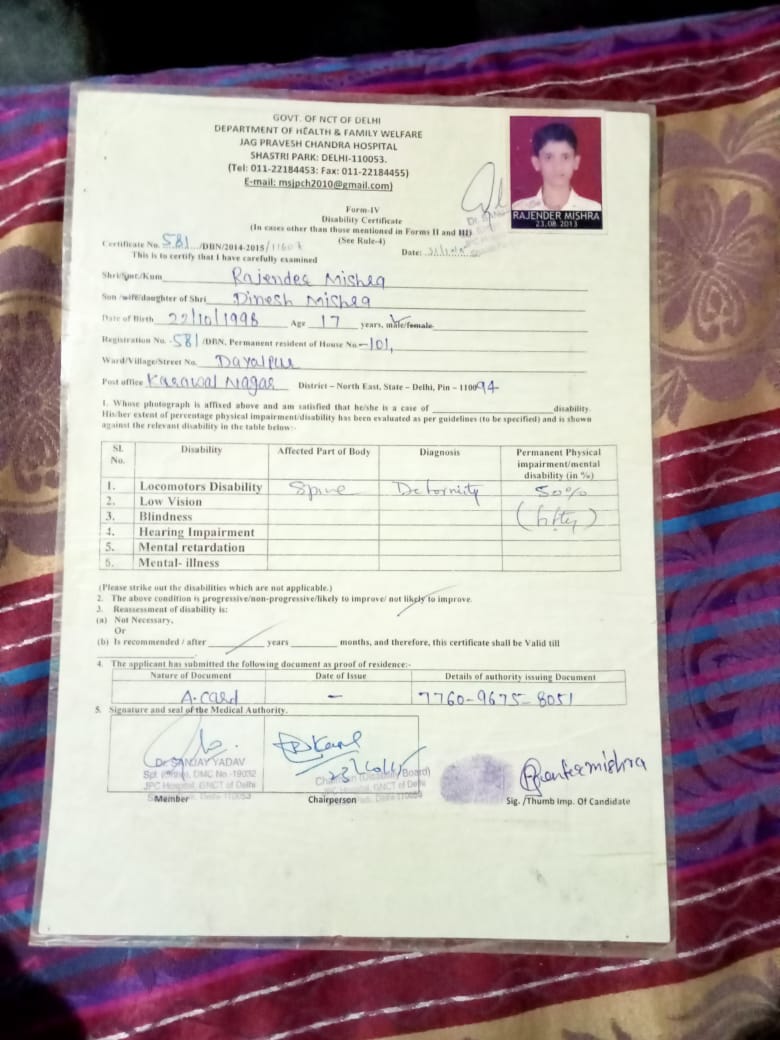 GOVT. OF NCT OF DELHI
DEPARTMENT OF HEALTH & FAMILY WELFARE
JAG PRAVESH CHANDRA HOSPITAL
SHASTRI PARK: DELHI-110053.
(Tel: 011-22184453: Fax: 011-22184455)
E-mail: msjpch2010@gmail.com)
RAJENDER MISHRA
23.08.2013
Form-IV
Disability Certificate
(In cases other than those mentioned in Forms II and III)
(See Rule-4)
Certificate No. 581 /DBN/2014-2015/ Date:
This is to certify that I have carefully examined
Shri/Smt./Kum Rajender Mishra
Son /wife/daughter of Shri Dinesh Mishra
Date of Birth 22/10/1998 Age 17 years, male/female
Registration No. 581 /DBN, Permanent resident of House No 101,
Ward/Village/Street No. Dayalpur
Post office Karawal Nagar District – North East, State – Delhi, Pin – 110094
1. Whose photograph is affixed above and am satisfied that he/she is a case of disability.
His/her extent of percentage physical impairment/disability has been evaluated as per guidelines (to be specified) and is shown
against the relevant disability in the table below:-
Sl. No. Disability Affected Part of Body Diagnosis Permanent Physical impairment/mental disability (in %)
1. Locomotors Disability Spine Deformity 50%
2. Low Vision
3. Blindness (fifty)
4. Hearing Impairment
5. Mental retardation
6. Mental- illness
(Please strike out the disabilities which are not applicable.)
2. The above condition is progressive/non-progressive/likely to improve/ not likely to improve.
3. Reassessment of disability is:
(a) Not Necessary,
Or
(b) Is recommended / after years months, and therefore, this certificate shall be Valid till
4. The applicant has submitted the following document as proof of residence:-
Nature of Document Date of Issue Details of authority issuing Document
A. Card – 7760-9675-8051
5. Signature and seal of the Medical Authority.
Dr. SANJAY YADAV
DMC No -19032
JPC Hospital, GNCT of Delhi
Chairman (Disability Board)
JPC Hospital, GNCT of Delhi
23/10/15
Member Chairperson Sig. /Thumb Imp. Of Candidate